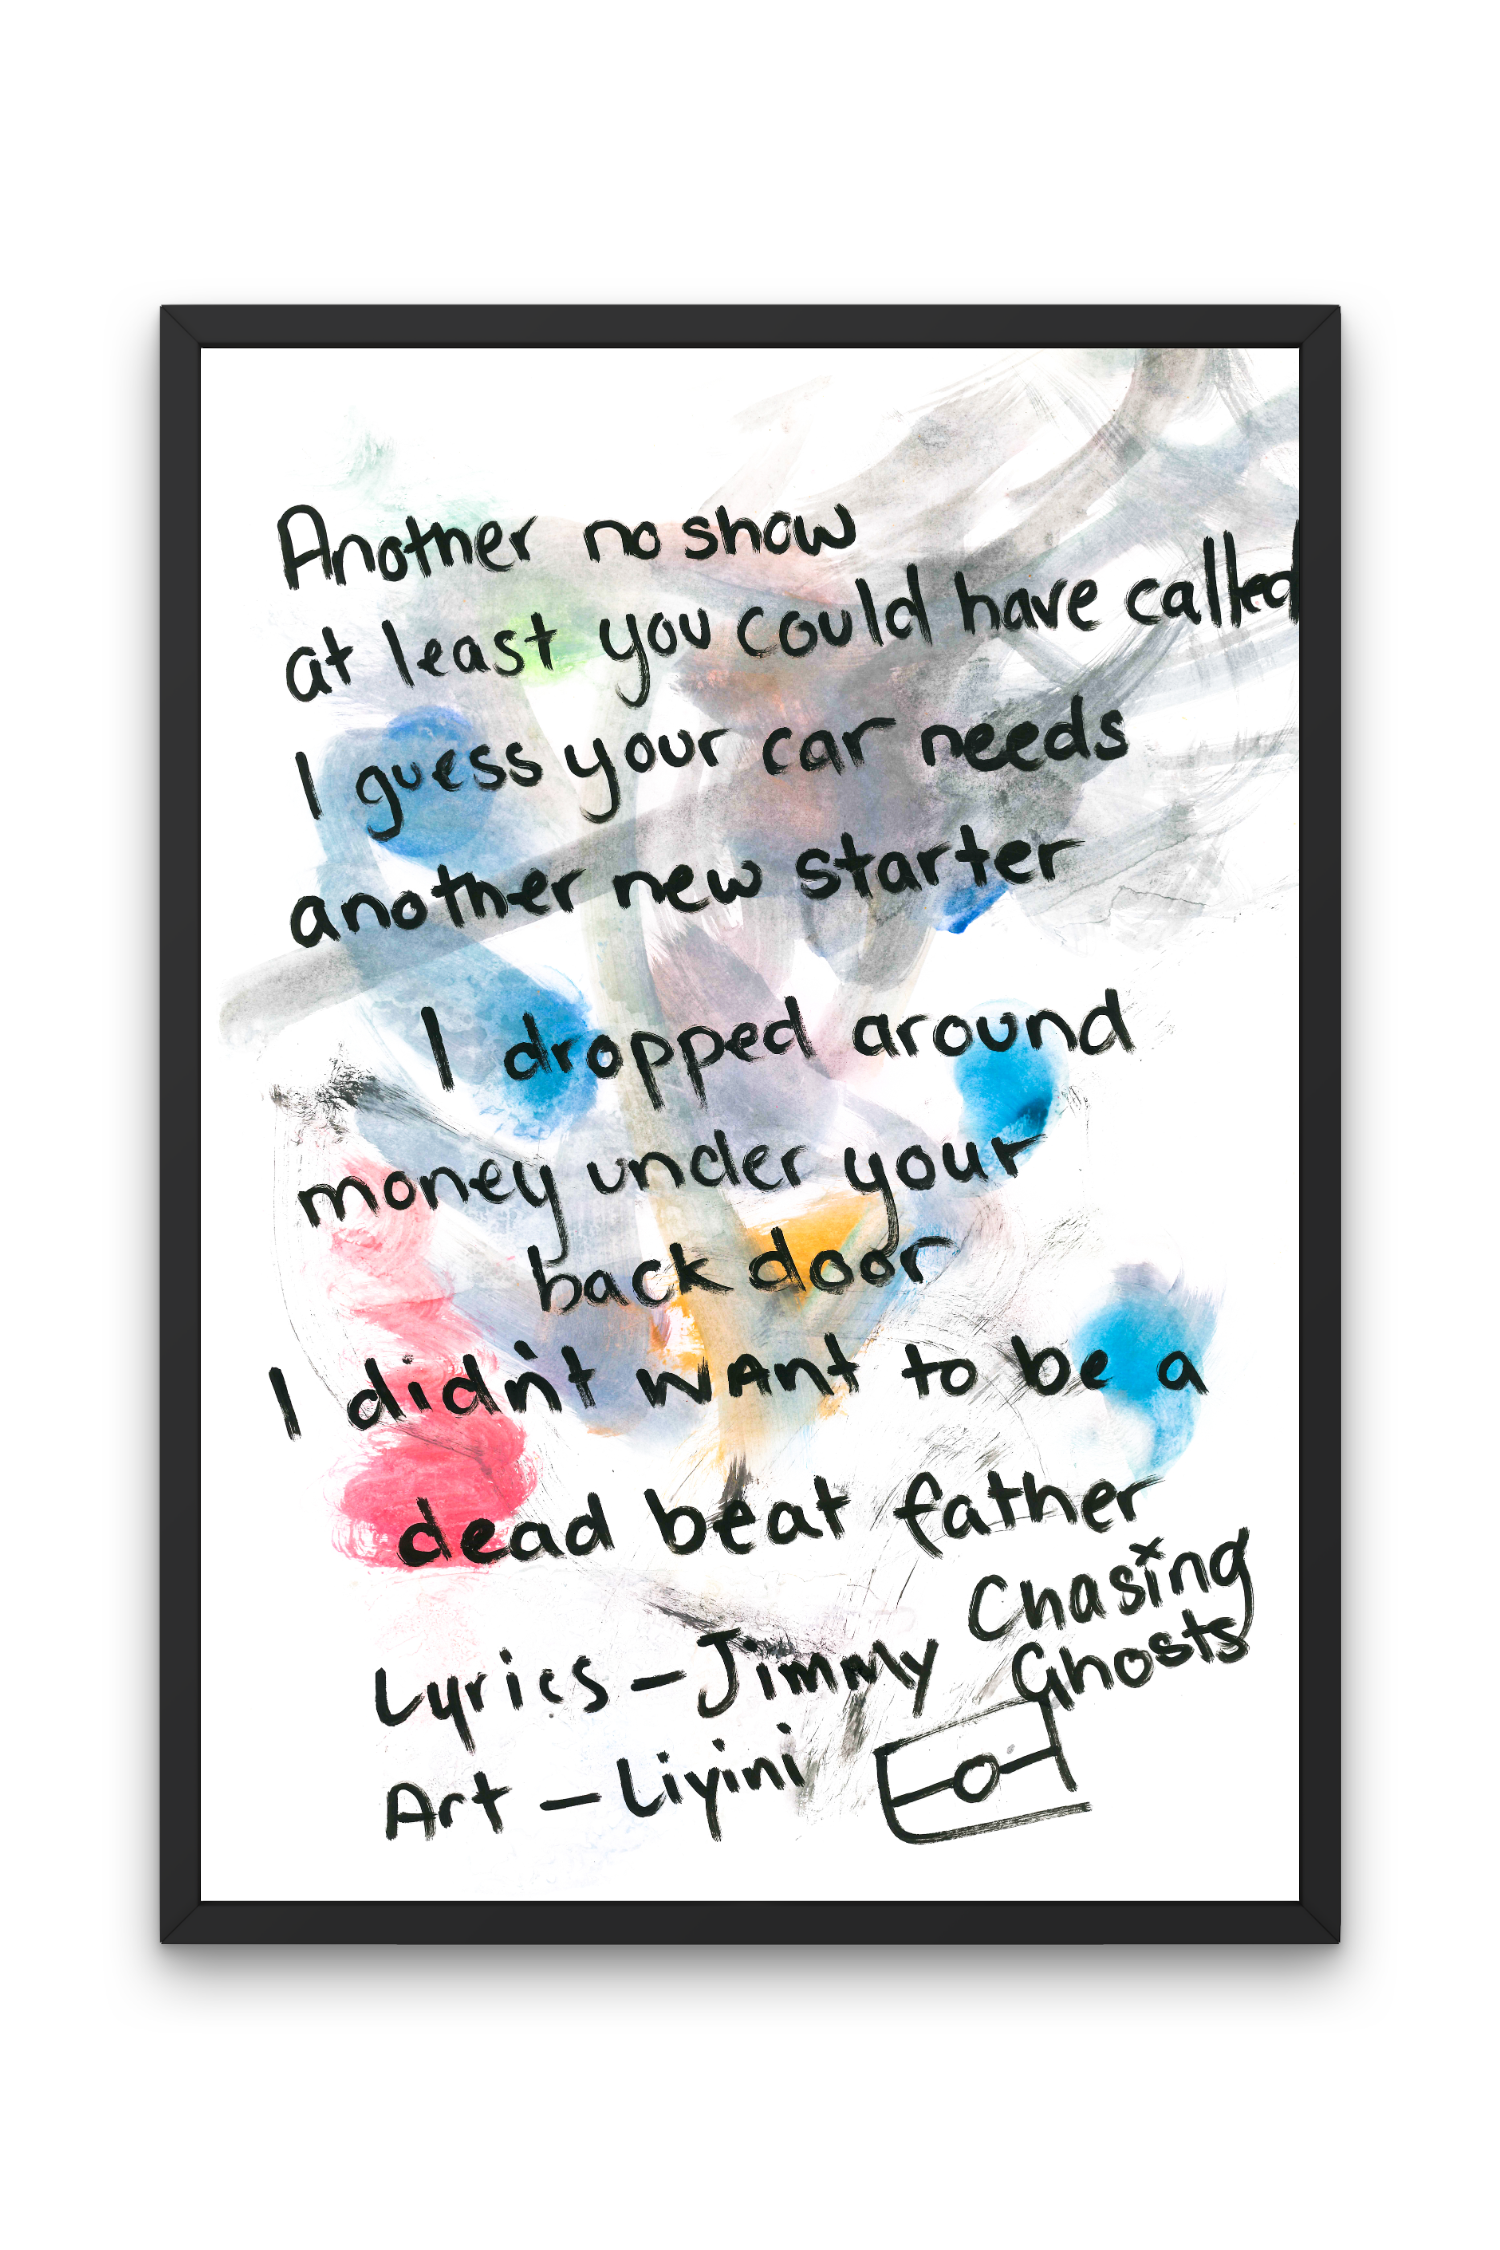 Another no show
at least you could have called
I guess your car needs
another new starter
I dropped around
money under your
back door
I didn't wAnt to be a
dead beat father
Chasing
Ghosts
Lyrics – Jimmy
Art – Liyini